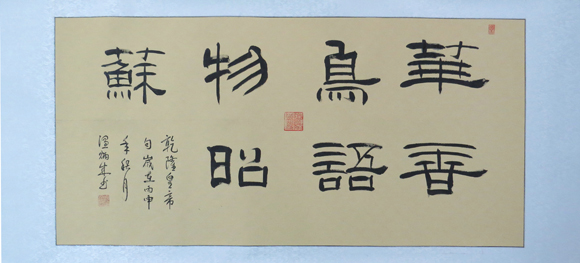 華香
鳥語
物昭
蘇
乾隆皇帝
句歲在丙申
年秋月